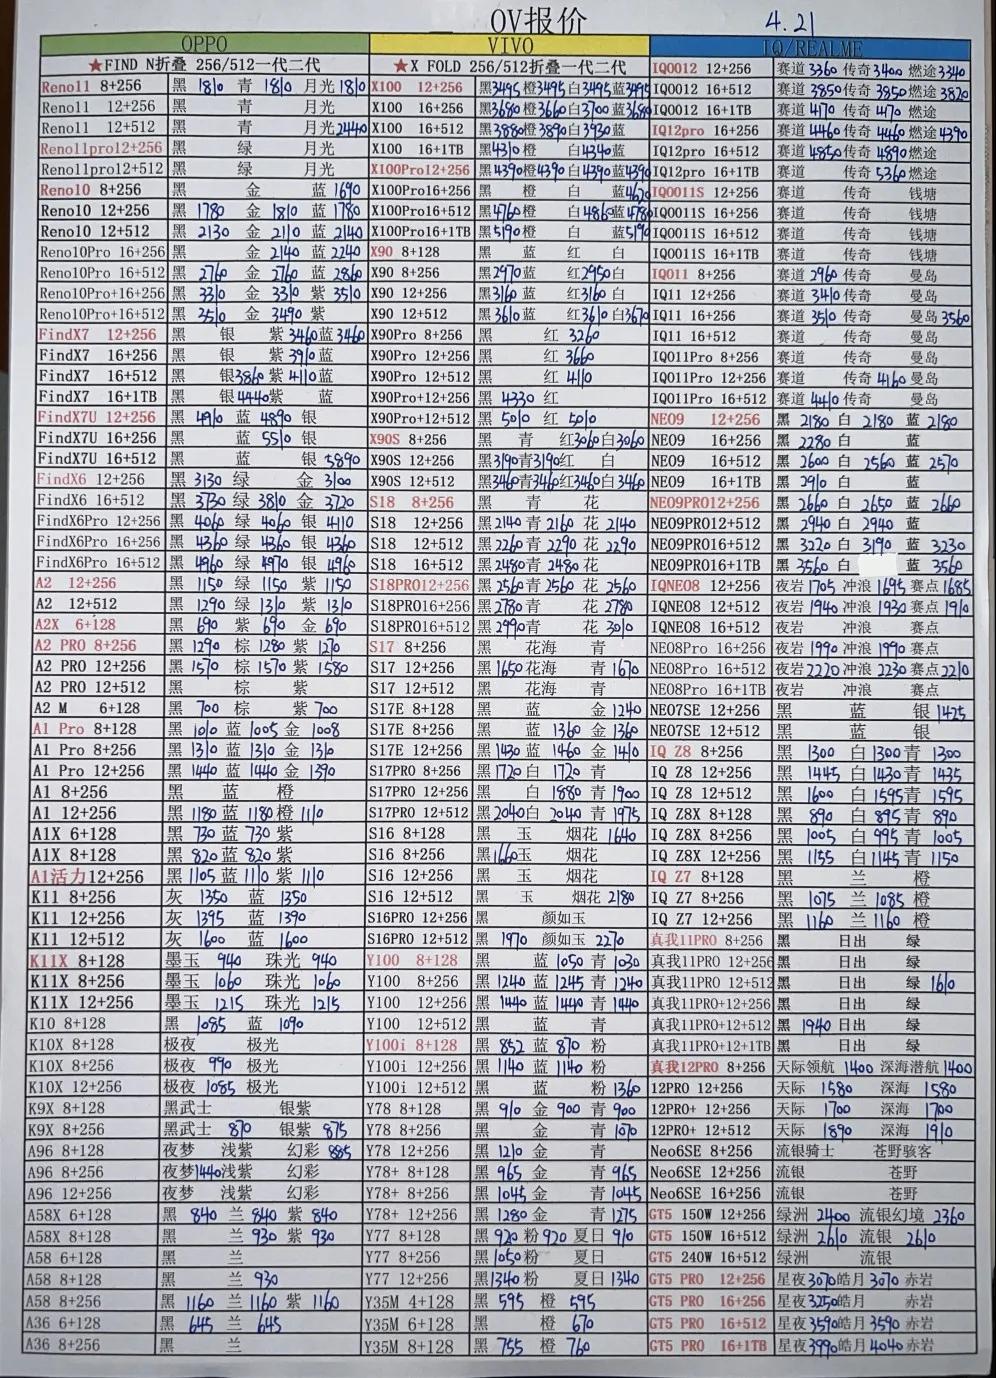 OV报价 4.21
OPPO
★FIND N折叠 256/512一代二代
Reno11 8+256 黑 1810 青 1810 月光 1810
Reno11 12+256 黑 青 月光
Reno11 12+512 黑 青 月光 2440
Reno11pro12+256 黑 绿 月光
Reno11pro12+512 黑 绿 月光
Reno10 8+256 黑 金 蓝 1690
Reno10 12+256 黑 1780 金 1810 蓝 1780
Reno10 12+512 黑 2130 金 2110 蓝 2140
Reno10Pro 16+256 黑 金 2140 蓝 2240
Reno10Pro 16+512 黑 2760 金 2760 蓝 2860
Reno10Pro+16+256 黑 3310 金 3310 紫 3510
Reno10Pro+16+512 黑 3510 金 3490 紫
FindX7 12+256 黑 银 紫 3460 蓝 3460
FindX7 16+256 黑 银 紫 3910 蓝
FindX7 16+512 黑 银 3860 紫 4110 蓝
FindX7 16+1TB 黑 银 4440 紫 蓝
FindX7U 12+256 黑 4910 蓝 4890 银
FindX7U 16+256 黑 蓝 5510 银
FindX7U 16+512 黑 蓝 银 5890
FindX6 12+256 黑 3130 绿 金 3100
FindX6 16+512 黑 3730 绿 3810 金 3720
FindX6Pro 12+256 黑 4060 绿 4060 银 4110
FindX6Pro 16+256 黑 4360 绿 4360 银 4360
FindX6Pro 16+512 黑 4960 绿 4970 银 4960
A2 12+256 黑 1150 绿 1150 紫 1150
A2 12+512 黑 1290 绿 1310 紫 1310
A2X 6+128 黑 690 紫 690 金 690
A2 PRO 8+256 黑 1290 棕 1280 紫 1270
A2 PRO 12+256 黑 1570 棕 1570 紫 1580
A2 PRO 12+512 黑 棕 紫
A2 M 6+128 黑 700 棕 紫 700
A1 Pro 8+128 黑 1010 蓝 1005 金 1008
A1 Pro 8+256 黑 1310 蓝 1310 金 1310
A1 Pro 12+256 黑 1440 蓝 1440 金 1390
A1 8+256 黑 蓝 橙
A1 12+256 黑 1180 蓝 1180 橙 1110
A1X 6+128 黑 730 蓝 730 紫
A1X 8+128 黑 820 蓝 820 紫
A1活力12+256 黑 1105 蓝 1110 紫 1110
K11 8+256 灰 1350 蓝 1350
K11 12+256 灰 1395 蓝 1390
K11 12+512 灰 1600 蓝 1600
K11X 8+128 墨玉 940 珠光 940
K11X 8+256 墨玉 1060 珠光 1060
K11X 12+256 墨玉 1215 珠光 1215
K10 8+128 黑 1085 蓝 1090
K10X 8+128 极夜 极光
K10X 8+256 极夜 990 极光
K10X 12+256 极夜 1085 极光
K9X 8+128 黑武士 银紫
K9X 8+256 黑武士 870 银紫 875
A96 8+128 夜梦 浅紫 幻彩 885
A96 8+256 夜梦 1440 浅紫 幻彩
A96 12+256 夜梦 浅紫 幻彩
A58X 6+128 黑 840 兰 840 紫 840
A58X 8+128 黑 兰 930 紫 930
A58 6+128 黑 兰
A58 8+128 黑 兰 930
A58 8+256 黑 1160 兰 1160 紫 1160
A36 6+128 黑 645 兰 645
A36 8+256 黑 兰
VIVO
★X FOLD 256/512折叠一代二代
X100 12+256 黑 3495 橙 3495 白 3495 蓝 3495
X100 16+256 黑 3680 橙 3660 白 3700 蓝 3680
X100 16+512 黑 3880 橙 3890 白 3930 蓝
X100 16+1TB 黑 4310 橙 白 4340 蓝
X100Pro12+256 黑 4390 橙 4390 白 4390 蓝 4390
X100Pro16+256 黑 橙 白 蓝 4620
X100Pro16+512 黑 4760 橙 白 4860 蓝 4780
X100Pro16+1TB 黑 5190 橙 白 蓝 5190
X90 8+128 黑 蓝 红 白
X90 8+256 黑 2970 蓝 红 2950 白
X90 12+256 黑 3160 蓝 红 3160 白
X90 12+512 黑 3610 蓝 红 3610 白 3670
X90Pro 8+256 黑 红 3260
X90Pro 12+256 黑 红 3660
X90Pro 12+512 黑 红 4110
X90Pro+12+256 黑 4330 红
X90Pro+12+512 黑 5010 红 5010
X90S 8+256 黑 青 红 3060 白 3060
X90S 12+256 黑 3190 青 3190 红 白
X90S 12+512 黑 3460 青 3460 红 3460 白 3460
S18 8+256 黑 青 花
S18 12+256 黑 2140 青 2160 花 2140
S18 12+512 黑 2260 青 2290 花 2290
S18 16+512 黑 2480 青 2480 花
S18PRO12+256 黑 2560 青 2560 花 2560
S18PRO16+256 黑 2780 青 花 2780
S18PRO16+512 黑 2990 青 花 3010
S17 8+256 黑 花海 青
S17 12+256 黑 1650 花海 青 1670
S17 12+512 黑 花海 青
S17E 8+128 黑 蓝 金 1240
S17E 8+256 黑 蓝 1360 金 1360
S17E 12+256 黑 1430 蓝 1460 金 1410
S17PRO 8+256 黑 1720 白 1720 青
S17PRO 12+256 黑 白 1880 青 1900
S17PRO 12+512 黑 2040 白 2040 青 1975
S16 8+128 黑 玉 烟花 1640
S16 8+256 黑 1660 玉 烟花
S16 12+256 黑 玉 烟花
S16 12+512 黑 玉 烟花 2180
S16PRO 12+256 黑 颜如玉
S16PRO 12+512 黑 1970 颜如玉 2270
Y100 8+128 黑 蓝 1050 青 1030
Y100 8+256 黑 1240 蓝 1245 青 1240
Y100 12+256 黑 1440 蓝 1440 青 1440
Y100 12+512 黑 蓝 青
Y100i 8+128 黑 852 蓝 870 粉
Y100i 12+256 黑 1140 蓝 1140 粉
Y100i 12+512 黑 蓝 粉 1360
Y78 8+128 黑 910 金 900 青 900
Y78 8+256 黑 金 青 1070
Y78 12+256 黑 1210 金 青
Y78+ 8+128 黑 965 金 青 965
Y78+ 8+256 黑 1045 金 青 1045
Y78+ 12+256 黑 1280 金 青 1275
Y77 8+128 黑 920 粉 920 夏日 910
Y77 8+256 黑 1050 粉 夏日
Y77 12+256 黑 1340 粉 夏日 1340
Y35M 4+128 黑 595 橙 595
Y35M 6+128 黑 橙 670
Y35M 8+128 黑 755 橙 760
IQ/REALME
IQOO12 12+256 赛道 3360 传奇 3400 燃途 3340
IQOO12 16+512 赛道 3850 传奇 3850 燃途 3820
IQOO12 16+1TB 赛道 4170 传奇 4170 燃途
IQ12pro 16+256 赛道 4460 传奇 4460 燃途 4390
IQ12pro 16+512 赛道 4850 传奇 4890 燃途
IQ12pro 16+1TB 赛道 传奇 5360 燃途
IQOO11S 12+256 赛道 传奇 钱塘
IQOO11S 16+256 赛道 传奇 钱塘
IQOO11S 16+512 赛道 传奇 钱塘
IQOO11S 16+1TB 赛道 传奇 钱塘
IQO11 8+256 赛道 2960 传奇 曼岛
IQ11 12+256 赛道 3410 传奇 曼岛
IQ11 16+256 赛道 3510 传奇 曼岛 3560
IQ11 16+512 赛道 传奇 曼岛
IQO11Pro 8+256 赛道 传奇 曼岛
IQO11Pro 12+256 赛道 传奇 4160 曼岛
IQO11Pro 16+512 赛道 4410 传奇 曼岛
NEO9 12+256 黑 2180 白 2180 蓝 2180
NEO9 16+256 黑 2280 白 蓝
NEO9 16+512 黑 2600 白 2560 蓝 2570
NEO9 16+1TB 黑 2910 白 蓝
NEO9PRO12+256 黑 2660 白 2650 蓝 2660
NEO9PRO16+256 黑 2940 白 2940 蓝
NEO9PRO16+512 黑 3220 白 3190 蓝 3230
NEO9PRO16+1TB 黑 3560 白 蓝 3560
IQNEO8 12+256 夜岩 1705 冲浪 1695 赛点 1685
IQNEO8 12+512 夜岩 1940 冲浪 1930 赛点 1910
IQNEO8 16+512 夜岩 冲浪 赛点
NEO8Pro 16+256 夜岩 1990 冲浪 1990 赛点
NEO8Pro 16+512 夜岩 2220 冲浪 2230 赛点 2210
NEO8Pro 16+1TB 夜岩 冲浪 赛点
NEO7SE 12+256 黑 蓝 银 1425
NEO7SE 12+512 黑 蓝 银
IQ Z8 8+256 黑 1300 白 1300 青 1300
IQ Z8 12+256 黑 1445 白 1430 青 1435
IQ Z8 12+512 黑 1600 白 1595 青 1595
IQ Z8X 8+128 黑 890 白 895 青 890
IQ Z8X 8+256 黑 1005 白 995 青 1005
IQ Z8X 12+256 黑 1155 白 1145 青 1150
IQ Z7 8+128 黑 兰 橙
IQ Z7 8+256 黑 1075 兰 1085 橙
IQ Z7 12+256 黑 1160 兰 1160 橙
真我11PRO 8+256 黑 日出 绿
真我11PRO 12+256 黑 日出 绿
真我11PRO 12+512 黑 日出 绿 1610
真我11PRO+12+256 黑 日出 绿
真我11PRO+12+512 黑 1940 日出 绿
真我11PRO+12+1TB 黑 日出 绿
真我12PRO 8+256 天际领航 1400 深海潜航 1400
12PRO 12+256 天际 1580 深海 1580
12PRO+ 12+256 天际 1700 深海 1700
12PRO+ 12+512 天际 1890 深海 1910
Neo6SE 8+256 流银骑士 苍野骇客
Neo6SE 12+256 流银 苍野
Neo6SE 16+256 流银 苍野
GT5 150W 12+256 绿洲 2400 流银幻境 2360
GT5 150W 16+512 绿洲 2610 流银 2610
GT5 240W 16+512 绿洲 流银
GT5 PRO 12+256 星夜 3070 皓月 3070 赤岩
GT5 PRO 16+256 星夜 3250 皓月 赤岩
GT5 PRO 16+512 星夜 3590 皓月 3590 赤岩
GT5 PRO 16+1TB 星夜 3990 皓月 4040 赤岩